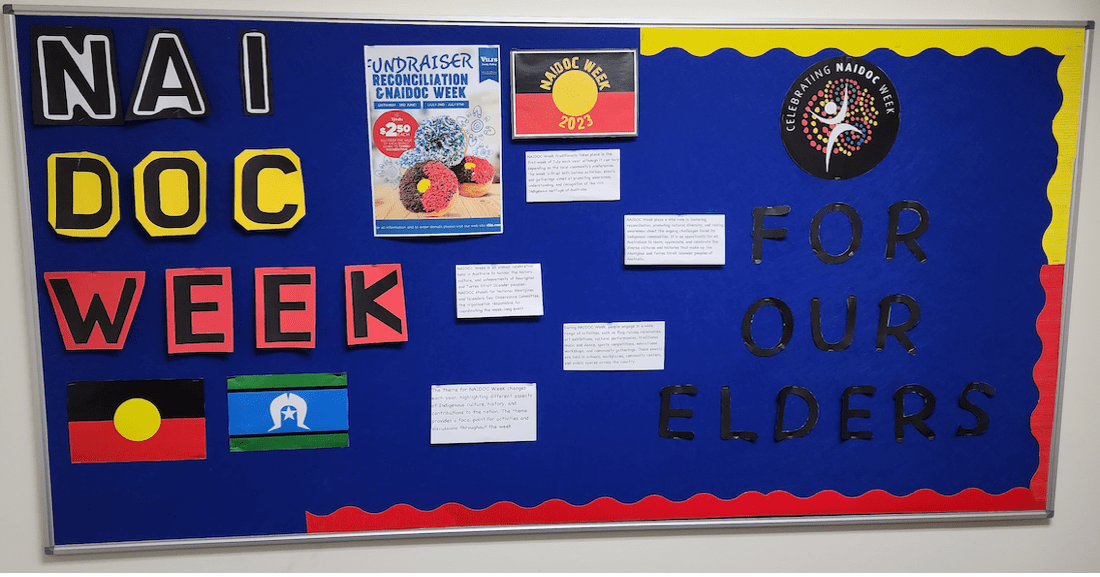 NAI
DOC
WEEK
FUNDRAISER
RECONCILIATION
& NAIDOC WEEK
VILI'S
$2.50
NAIDOC WEEK
2023
CELEBRATING NAIDOC WEEK
FOR
OUR
ELDERS
NAIDOC Week traditionally takes place in the
first week of July each year, although it can vary
depending on the local community's preferences.
The week is filled with various activities, events,
and gatherings aimed at promoting awareness,
understanding, and recognition of the rich
Indigenous heritage of Australia.
NAIDOC Week plays a vital role in fostering
reconciliation, promoting cultural diversity, and raising
awareness about the ongoing challenges faced by
Indigenous communities. It's an opportunity for all
Australians to learn, appreciate, and celebrate the
diverse cultures and histories that make up the
Aboriginal and Torres Strait Islander peoples of
Australia.
NAIDOC Week is an annual celebration
held in Australia to honour the history,
culture, and achievements of Aboriginal
and Torres Strait Islander peoples.
NAIDOC stands for National Aborigines
and Islanders Day Observance Committee,
the organisation responsible for
coordinating the week-long event.
During NAIDOC Week, people engage in a wide
range of activities, such as flag-raising ceremonies,
art exhibitions, cultural performances, traditional
music and dance, sports competitions, educational
workshops, and community gatherings. These events
are held in schools, workplaces, community centers,
and public spaces across the country.
The theme for NAIDOC Week changes
each year, highlighting different aspects
of Indigenous culture, history, and
contributions to the nation. The theme
provides a focal point for activities and
discussions throughout the week.